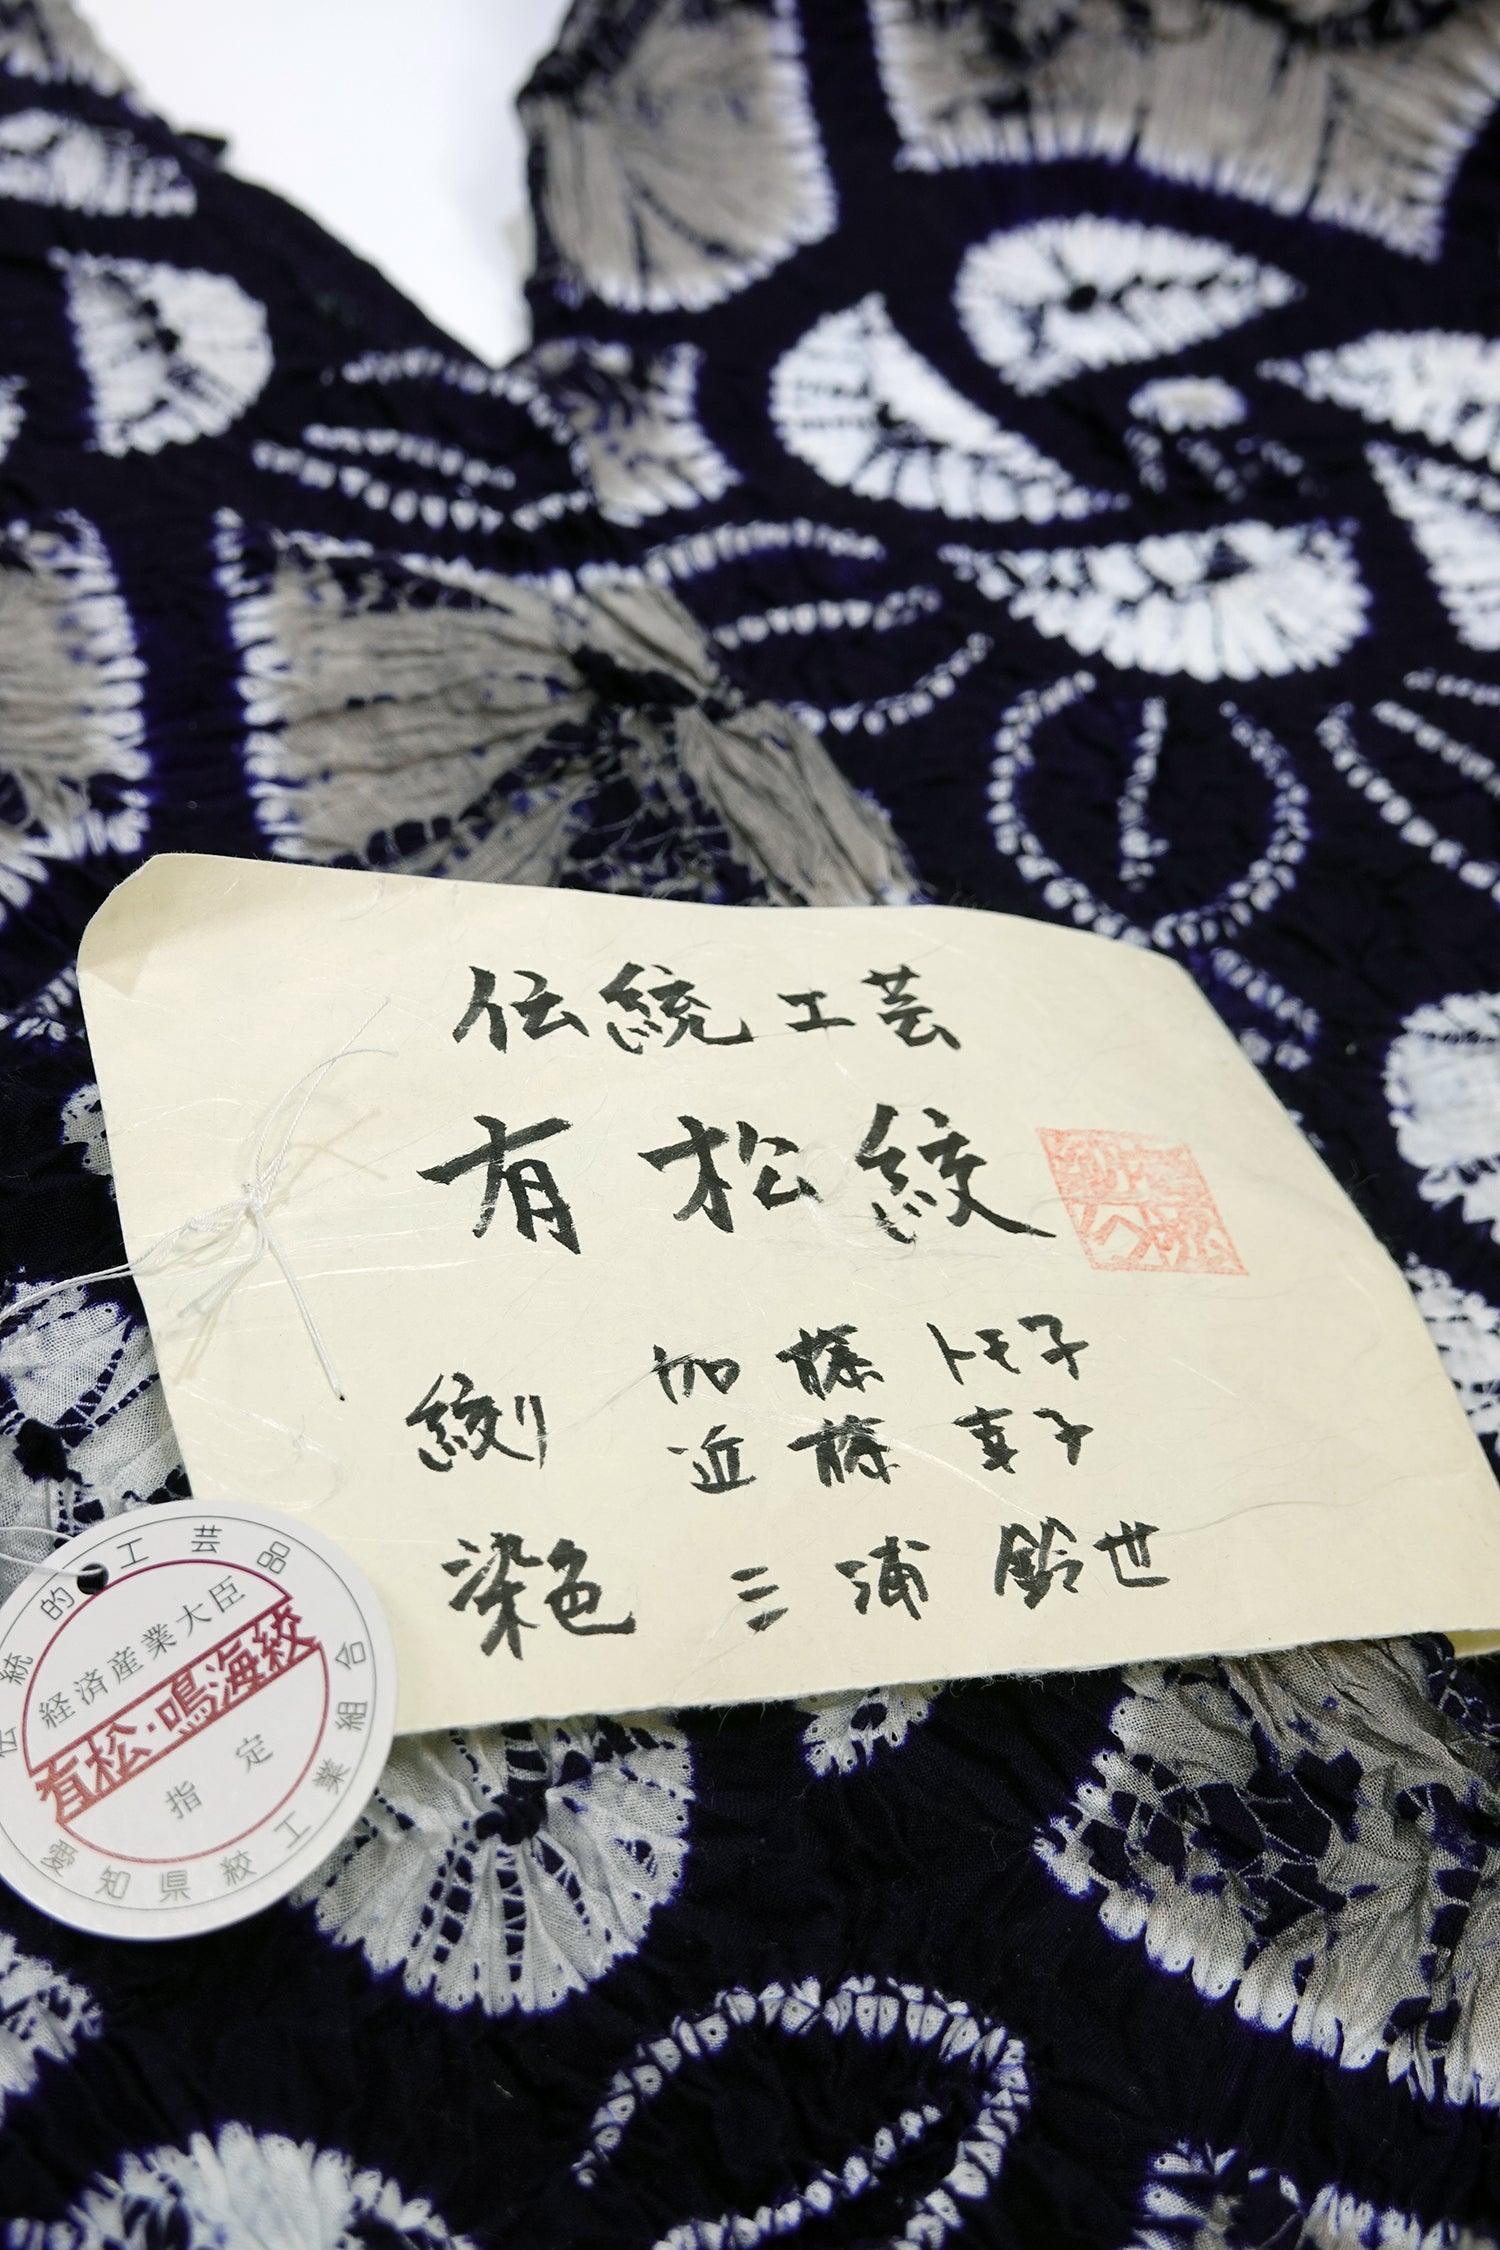 伝統工芸
有松絞
絞り 加藤トモ子
近藤幸子
染色 三浦鈴世
伝統的工芸品
経済産業大臣
有松・鳴海絞
指定
愛知県絞工業組合